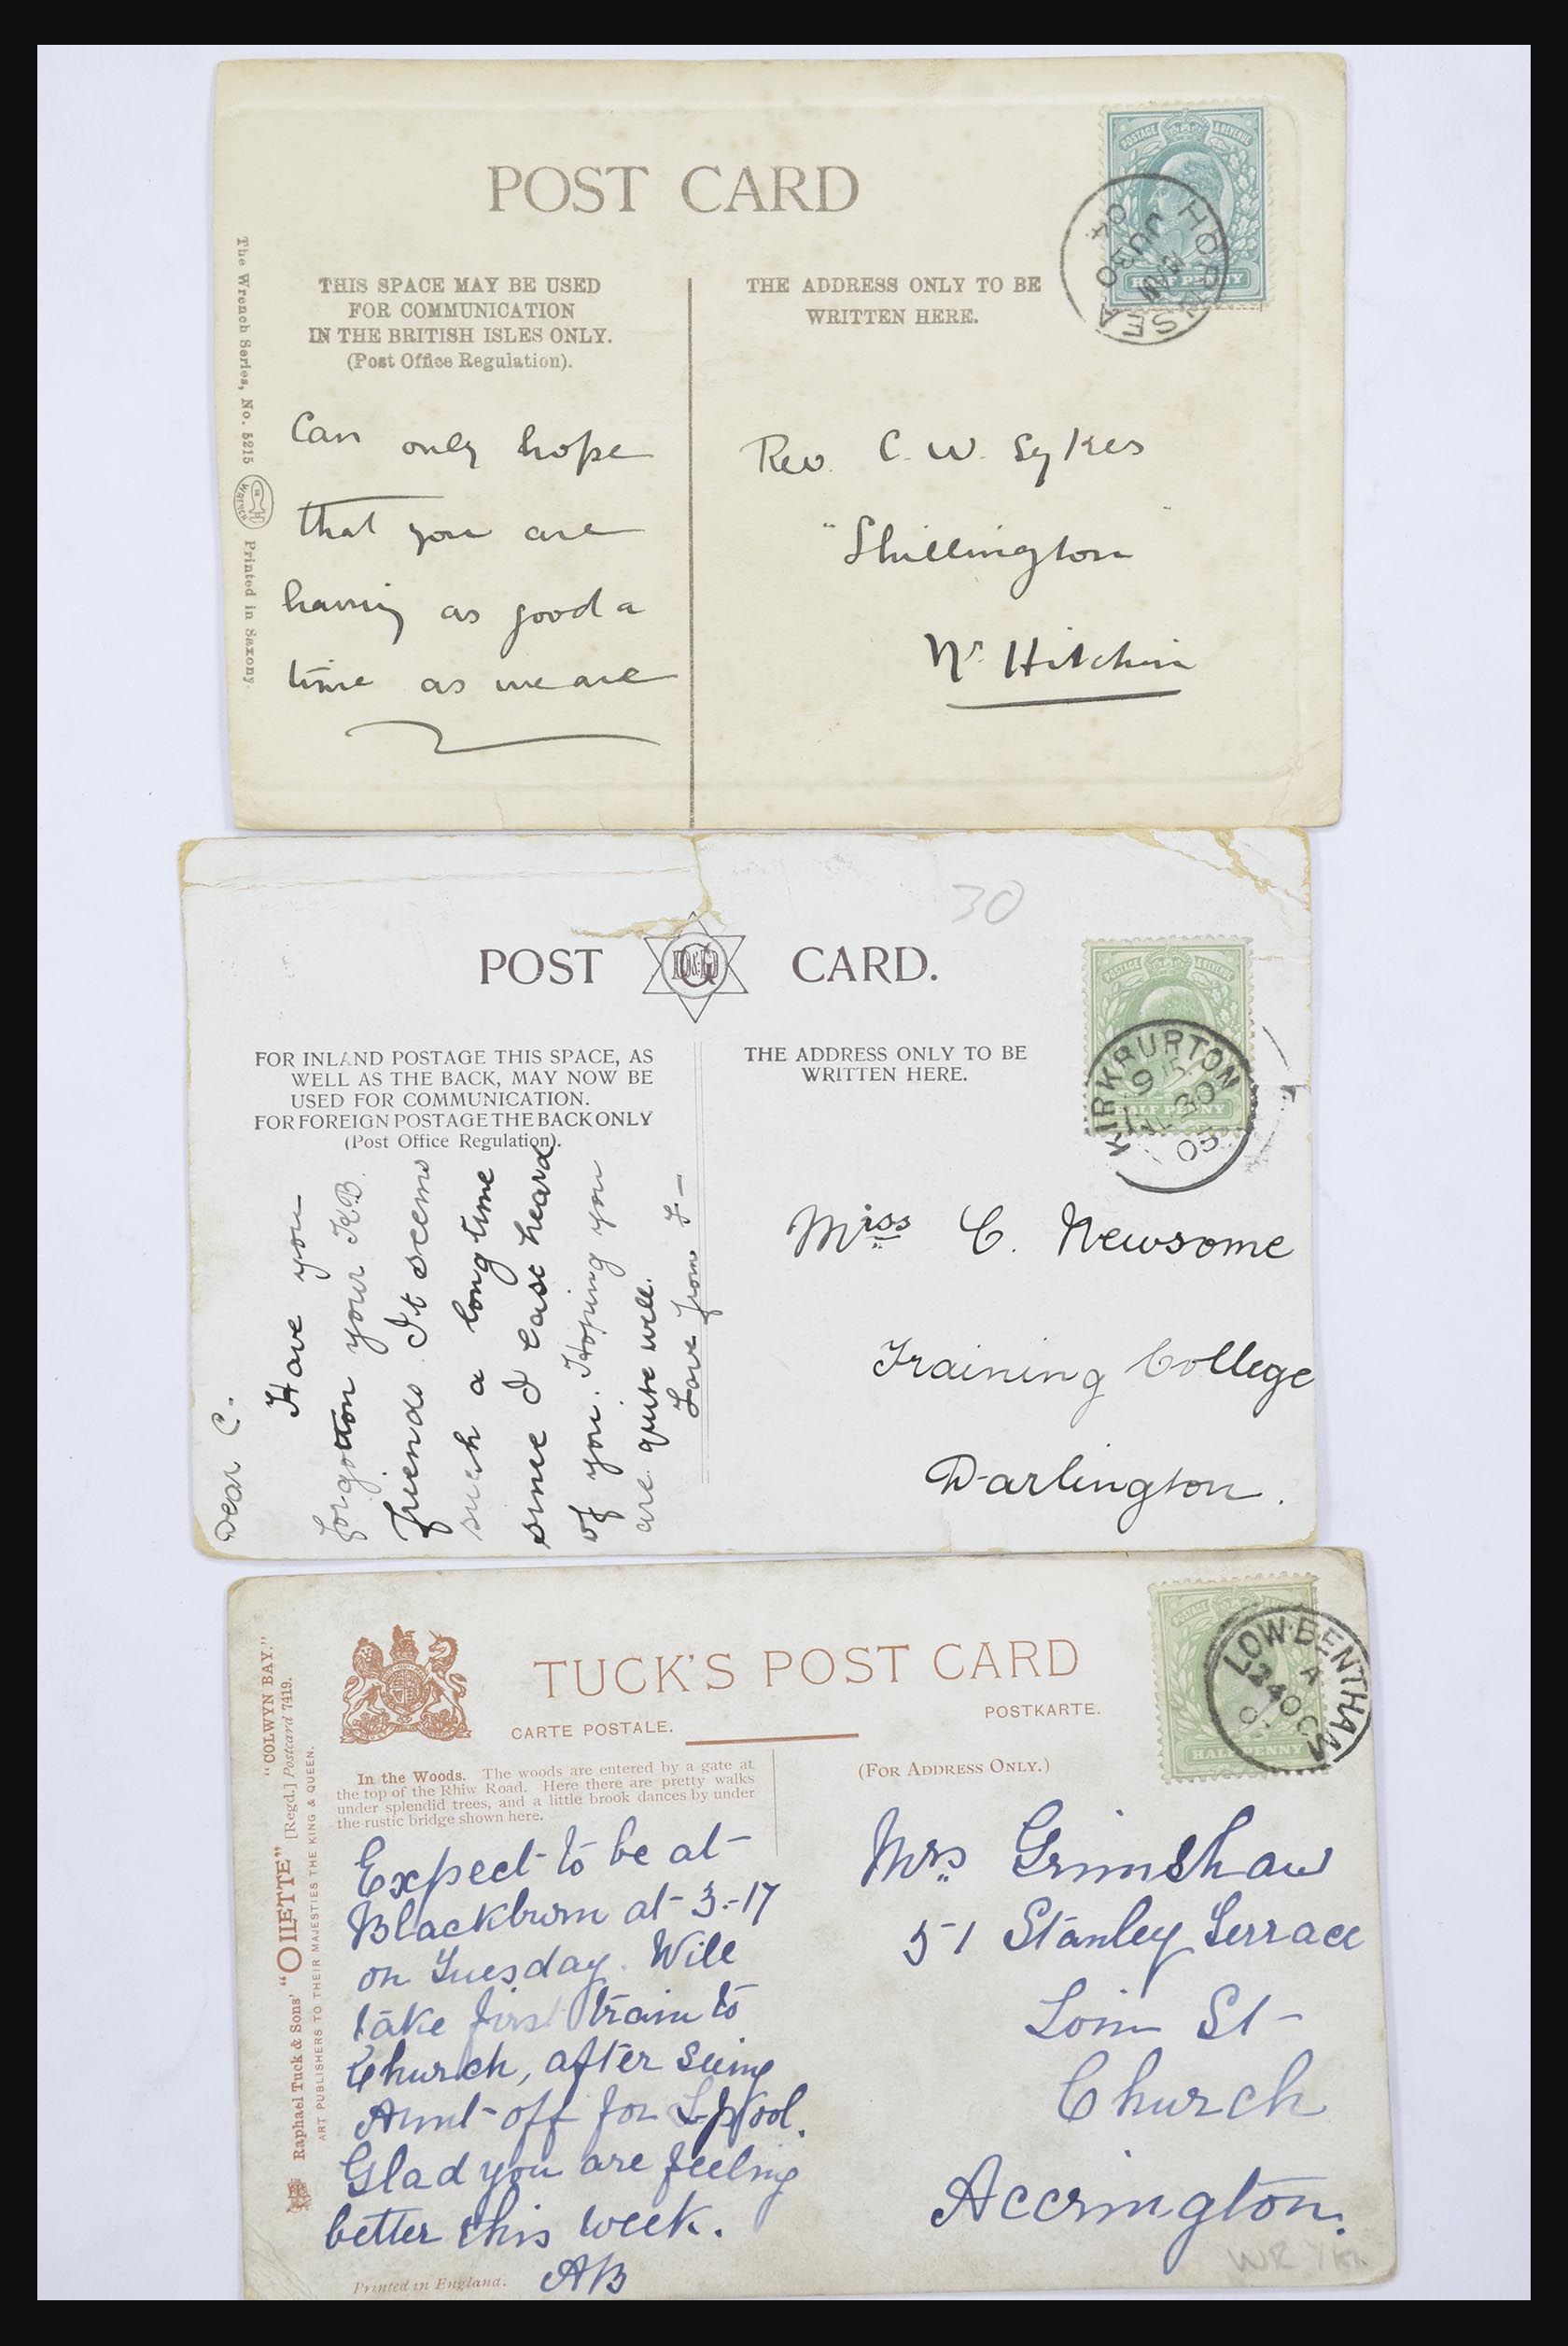 POST CARD
THIS SPACE MAY BE USED
FOR COMMUNICATION
IN THE BRITISH ISLES ONLY.
(Post Office Regulation).
THE ADDRESS ONLY TO BE
WRITTEN HERE.
POSTAGE & REVENUE
HALF PENNY
HORNSEA
JU 30
04
The Wrench Series, No. 5215
WRENCH
Printed in Saxony.
Can only hope
that you are
having as good a
time as we are
Rev. C. W. Sykes
"Shillington"
Nr. Hitchin
30
POST CARD.
FOR INLAND POSTAGE THIS SPACE, AS
WELL AS THE BACK, MAY NOW BE
USED FOR COMMUNICATION.
FOR FOREIGN POSTAGE THE BACK ONLY
(Post Office Regulation).
THE ADDRESS ONLY TO BE
WRITTEN HERE.
POSTAGE & REVENUE
HALF PENNY
KIRKBURTON
30
05
Dear C.
Have you
forgotton your K.B.
friends. It seems
such a long time
since I last heard
of you. Hoping you
are quite well.
Love from F—
Miss C. Newsome
Training College
Darlington.
TUCK'S POST CARD
CARTE POSTALE.
POSTKARTE.
In the Woods. The woods are entered by a gate at
the top of the Rhiw Road. Here there are pretty walks
under splendid trees, and a little brook dances by under
the rustic bridge shown here.
(FOR ADDRESS ONLY.)
POSTAGE
HALF PENNY
LOW-BENTHAM
A
24 OC
"COLWYN BAY."
Raphael Tuck & Sons' "OILETTE" [Regd.] Postcard 7419.
ART PUBLISHERS TO THEIR MAJESTIES THE KING & QUEEN.
Expect to be at
Blackburn at 3.-17
on Tuesday. Will
take first train to
Church, after seeing
Aunt off for L-pool.
Glad you are feeling
better this week.
AB
Printed in England.
Mrs Grimshaw
51 Stanley Terrace
Loin St
Church
Accrington.